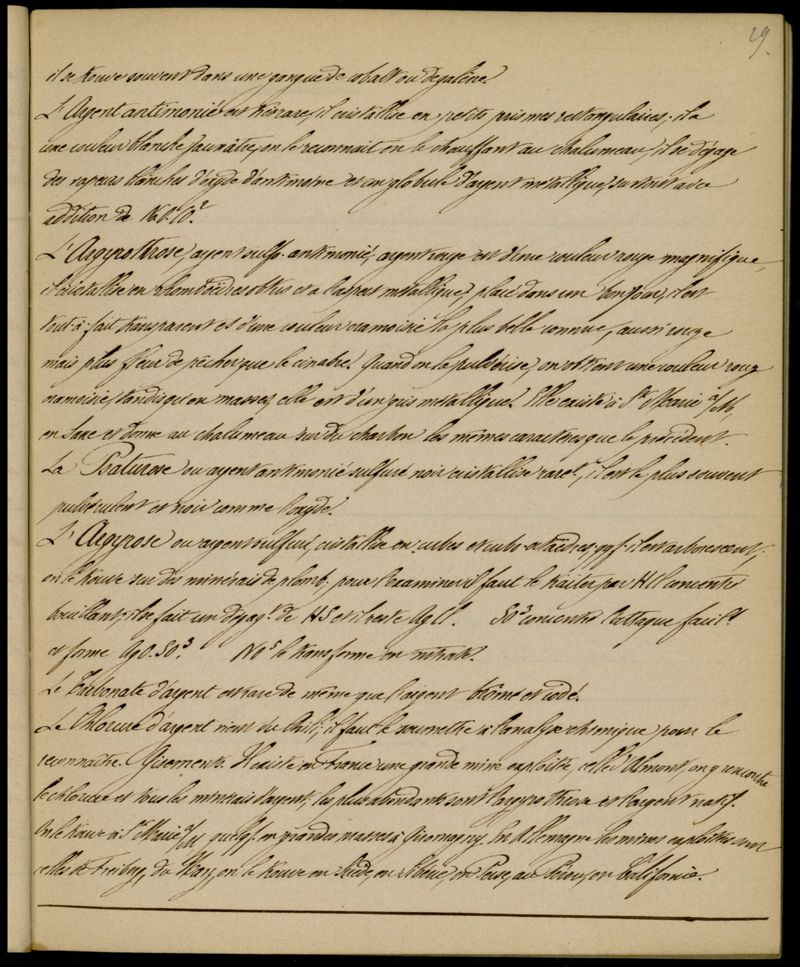 29.
il se trouve souvent dans une gangue de cobalt ou de galène.
L'Argent antimonié est très rare, il cristallise en petits prismes rectangulaires; il a
une couleur blanche jaunâtre, on le reconnait en le chauffant au chalumeau, il se dégage
des vapeurs blanches d'oxyde d'antimoine et un globule d'argent métallique, surtout avec
addition de
L'Argyrothrose, argent sulfo-antimonié, argent rouge est d'une couleur rouge magnifique,
il cristallise en rhomboïdres obtus et a l'aspect métallique, placé dans un bon jour, il est
tout à fait transparent et d'une couleur cramoisie la plus belle connue, aussi rouge
mais plus fleur de pêcher que le cinabre. Quand on la pulvérise, on obtient une couleur rouge
cramoisie, tandis qu'en masses, elle est d'un gris métallique. Elle existe à Ste Marie a/M,
en Saxe et donne au chalumeau sur du charbon les mêmes caractères que le précédent.
La Psaturose ou argent antimonié sulfuré noir cristallise raret, il est le plus souvent
pulvérulent et noir comme l'oxyde.
L'Argyrose ou argent sulfuré, cristallise en cubes et cubo-octaèdres, qqf. il est arborescent;
on le trouve sur des minerais de plomb, pour l'examiner il faut le traiter par HCl concentré
bouillant; il se fait un dégagt de HS et il reste AgCl. SO3 concentré l'attaque facilt
et forme AgO.SO3. NO5 le transforme en nitrate.
Le Carbonate d'argent est rare de même que l'argent bromé et iodé.
Le Chlorure d'argent vient du Chili; il faut le soumettre à l'analyse chimique pour le
reconnaître. Gisements. Il existe en France une grande mine exploitée, celle d'Almont, on y rencontre
le chlorure et tous les minerais d'argent; les plus abondants sont l'argyrothrose et l'argent natif.
On le trouve à Ste Marie a/M quelqf. en grandes masses à Giromagny. En Allemagne les mines exploitées sont
celles de Freiberg, du Harz, on le trouve en Suède, en Sibérie, en Perse, au Pérou, en Californie.